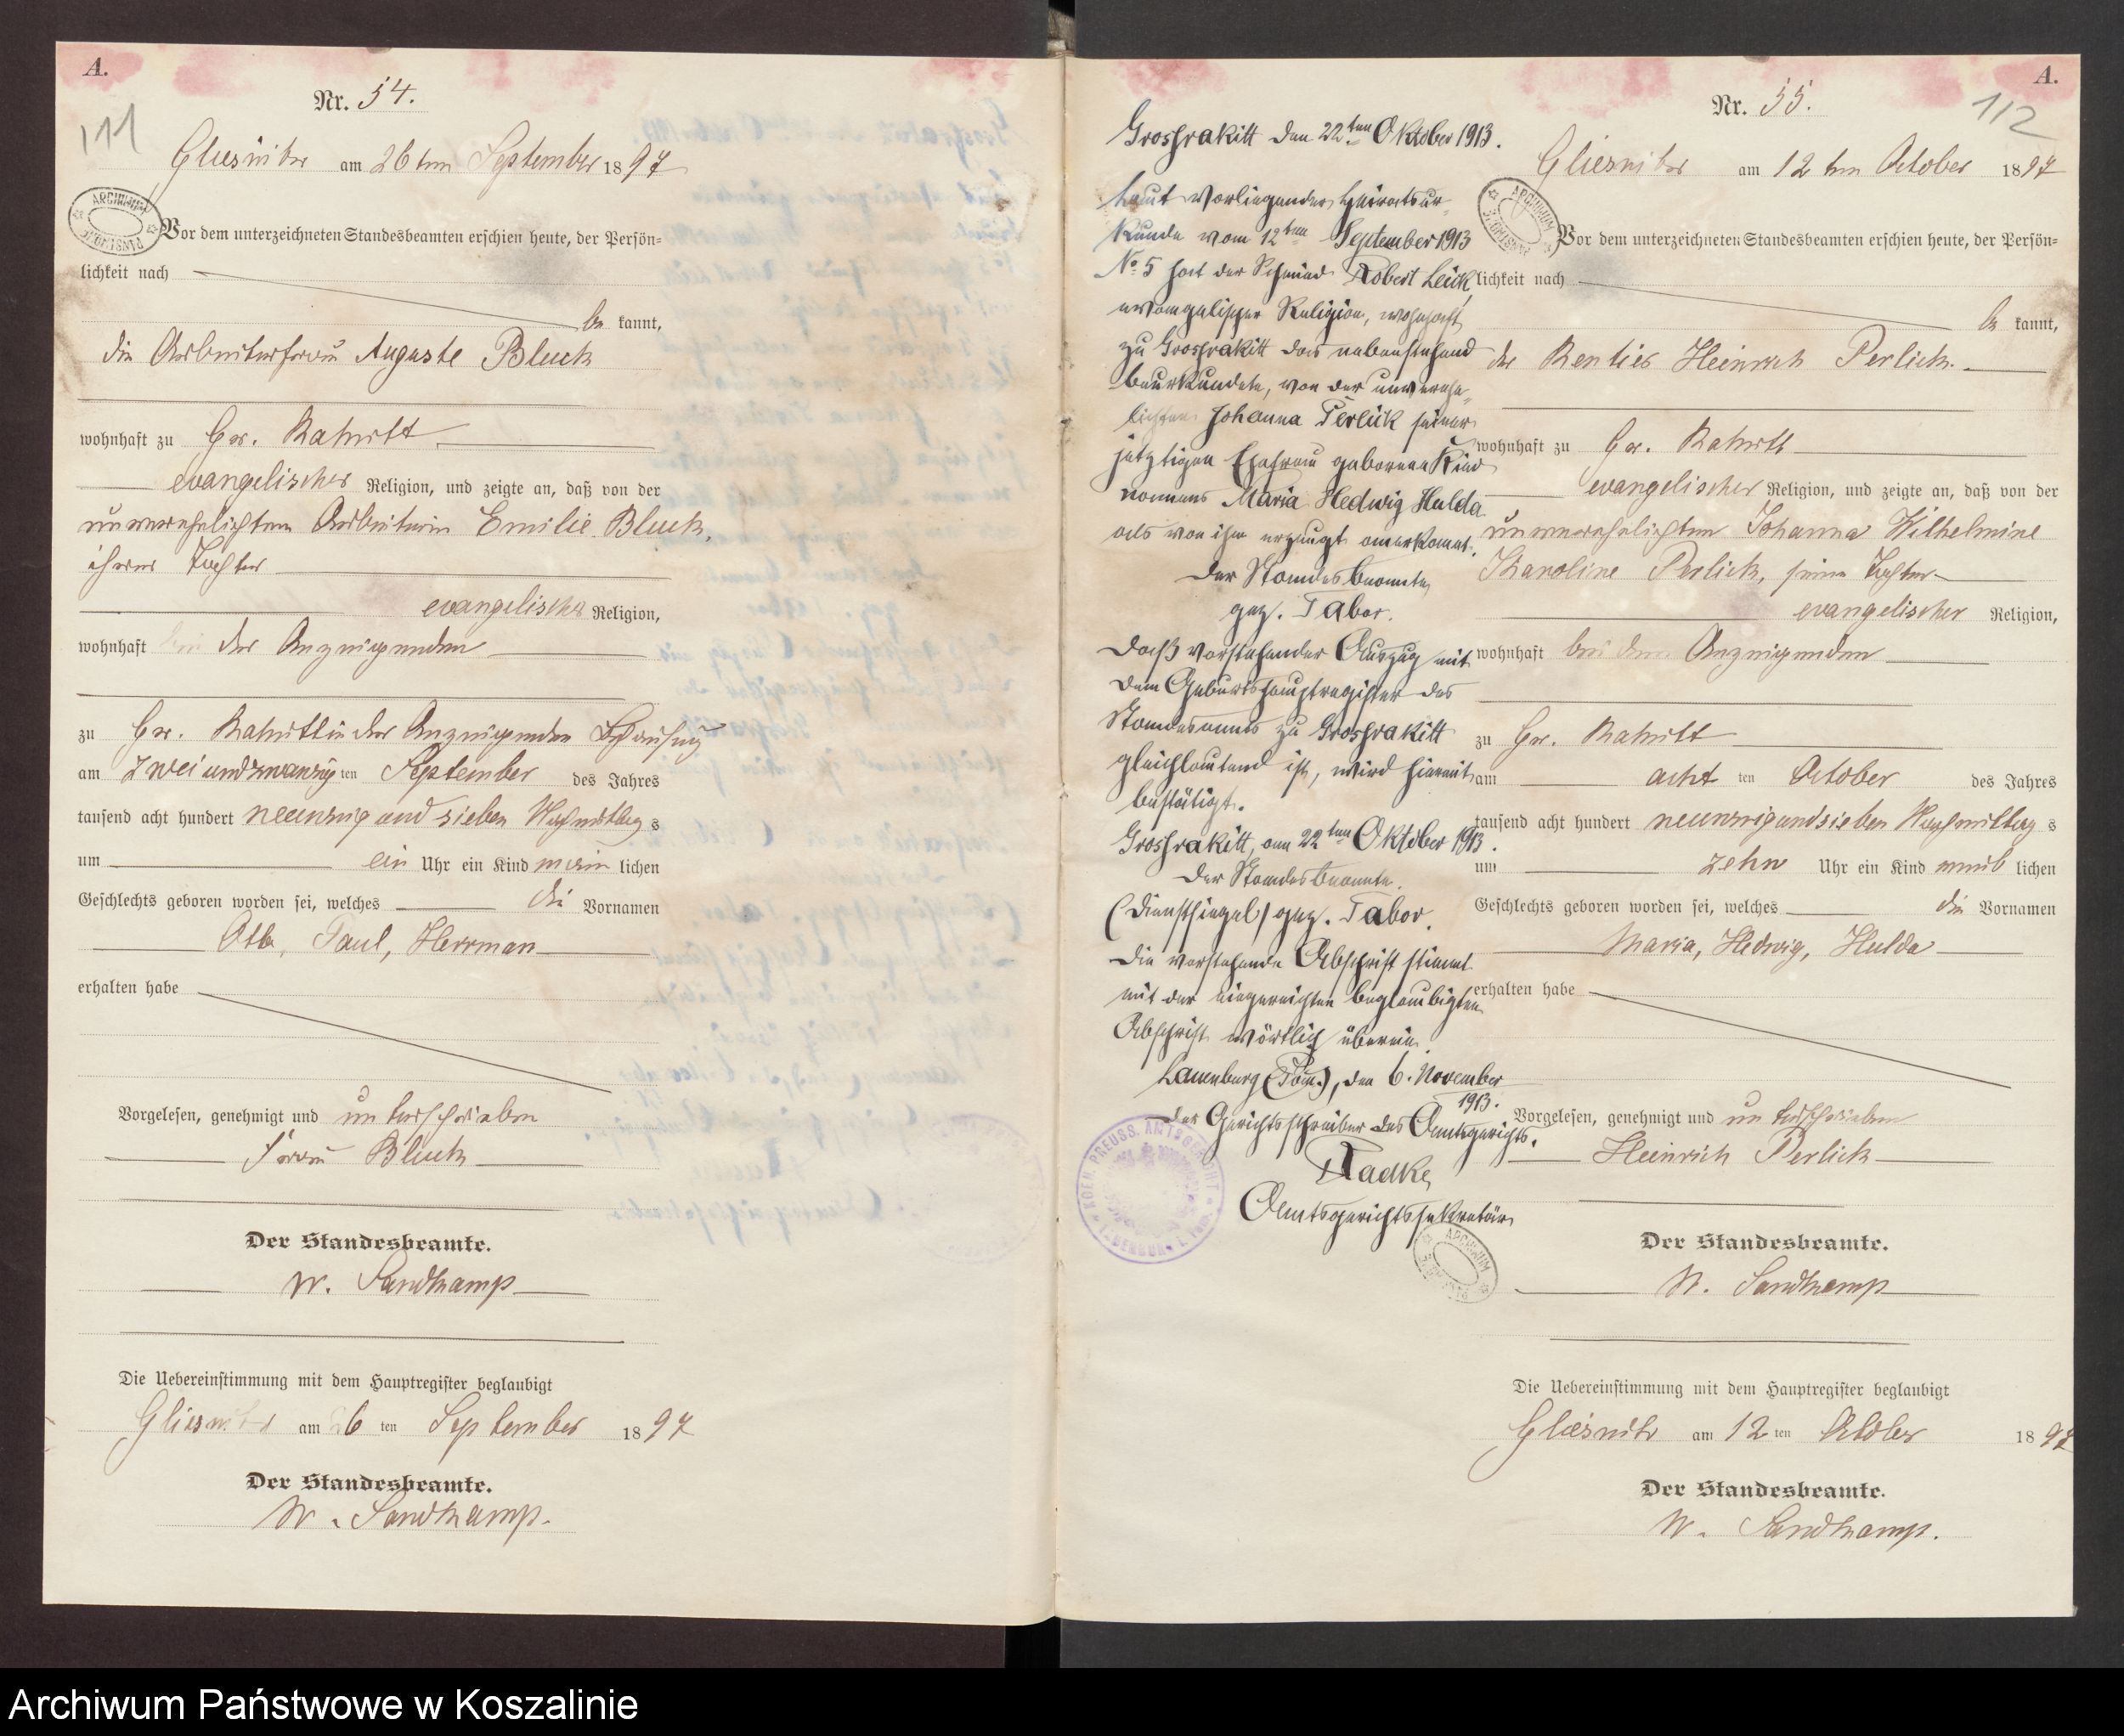 A.
111
Nr. 54.
Gliesnitz am 26ten September 1897
ARCHIWUM PAŃSTWOWE
Vor dem unterzeichneten Standesbeamten erschien heute, der Persön=
lichkeit nach
be kannt,
die Arbeiterfrau Auguste Bluck
wohnhaft zu Gr. Rakitt
evangelischer Religion, und zeigte an, daß von der
unverehelichten Arbeiterin Emilie Bluck,
ihrer Tochter
evangelischer Religion,
wohnhaft bei der Anzeigenden
zu Gr. Rakitt in der Anzeigenden Behausung
am zwei und zwanzig ten September des Jahres
tausend acht hundert neunzig und sieben Nachmittag s
um ein Uhr ein Kind männ lichen
Geschlechts geboren worden sei, welches die Vornamen
Otto, Paul, Herrman
erhalten habe
Vorgelesen, genehmigt und unterschrieben
Frau Bluck
Der Standesbeamte.
W. Sandkamp
Die Uebereinstimmung mit dem Hauptregister beglaubigt
Gliesnitz am 26 ten September 1897
Der Standesbeamte.
W. Sandkamp.
Grossrakitt den 22ten Oktober 1913.
Laut vorliegender Heiratsur-
kunde vom 12ten September 1913
No 5 hat der Schmied Robert Leick,
evangelischer Religion, wohnhaft
zu Grossrakitt das nebenstehend
beurkundete, von der unverehe-
lichten Johanna Perlick seiner
jetzigen Ehefrau geborene Kind
namens Maria Hedwig Hulda
als von ihm erzeugt anerkannt.
Der Standesbeamte
gez. Tabor.
Daß vorstehender Auszug mit
dem Geburtshauptregister des
Standesamts zu Grossrakitt
gleichlautend ist, wird hiermit
bestätigt.
Grossrakitt, am 22ten Oktober 1913.
Der Standesbeamte.
(Dienstsiegel) gez. Tabor.
Die vorstehende Abschrift stimmt
mit der eingereichten beglaubigten
Abschrift wörtlich überein.
Lauenburg (Pom.), den 6. November
1913.
Der Gerichtsschreiber des Amtsgerichts.
Radke,
Amtsgerichtssekretär
KOEN. PREUSS. AMTSGERICHT
ARCHIWUM
A.
112
Nr. 55.
Gliesnitz am 12ten October 1897
ARCHIWUM PAŃSTWOWE
Vor dem unterzeichneten Standesbeamten erschien heute, der Persön=
lichkeit nach
be kannt,
der Rentier Heinrich Perlick.
wohnhaft zu Gr. Rakitt
evangelischer Religion, und zeigte an, daß von der
unverehelichten Johanna Wilhelmine
Karoline Perlick, seine Tochter
evangelischer Religion,
wohnhaft bei dem Anzeigenden
zu Gr. Rakitt
am acht ten October des Jahres
tausend acht hundert neunzig und sieben Nachmittag s
um zehn Uhr ein Kind weib lichen
Geschlechts geboren worden sei, welches die Vornamen
Maria, Hedwig, Hulda
erhalten habe
Vorgelesen, genehmigt und unterschrieben
Heinrich Perlick
Der Standesbeamte.
W. Sandkamp
Die Uebereinstimmung mit dem Hauptregister beglaubigt
Gliesnitz am 12 ten October 1897
Der Standesbeamte.
W. Sandkamp.
Archiwum Państwowe w Koszalinie